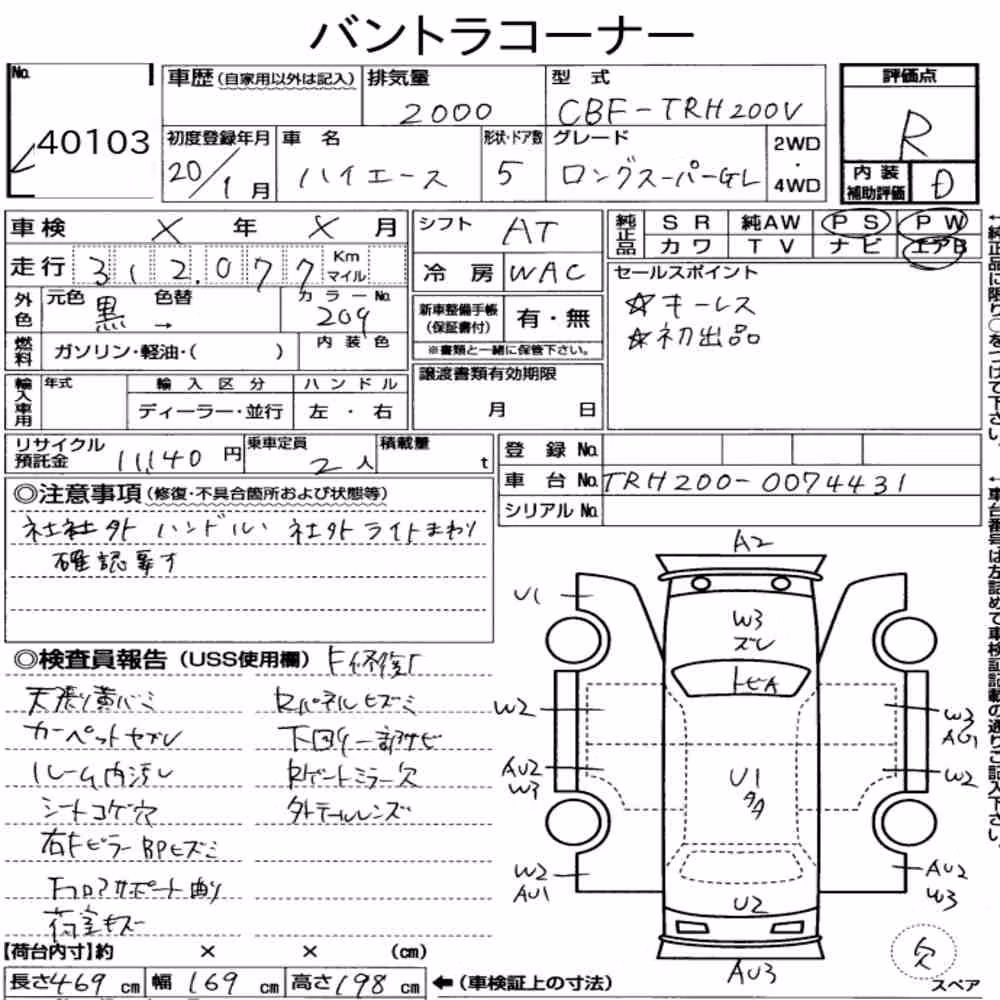 バントラコーナー
No. 40103
車歴(自家用以外は記入)
排気量 2000
型式 CBF-TRH200V
評価点 R
初度登録年月 20/1月
車名 ハイエース
形状・ドア数 5
グレード ロングスーパーGL
2WD・4WD
内装補助評価 D
車検 X年 X月
シフト AT
純正品 SR 純AW PS PW
カワ TV ナビ エアB
走行 312.077 Km マイル
冷房 WAC
セールスポイント
☆キーレス
☆初出品
外色 元色 黒 色替 → カラーNo. 209
新車整備手帳(保証書付) 有・無
※書類と一緒に保管下さい。
燃料 ガソリン・軽油・( ) 内装色
譲渡書類有効期限
月 日
輸入車用 年式 輸入区分 ハンドル
ディーラー・並行 左・右
リサイクル預託金 11,140円
乗車定員 2人
積載量 t
登録No.
車台No. TRH200-0074431
シリアルNo.
◎注意事項(修復・不具合箇所および状態等)
社社外ハンドル 社外ライトまわり
確認要す
◎検査員報告(USS使用欄) F修復
天張り黄バミ Rパネルヒズミ
カーペットヤブレ 下回り一部サビ
ルーム内汚レ Rゲートミラー欠
シートコゲ穴 外テールレンズ
右FピラーBPヒズミ
Fコアサポート曲り
荷室キズ
【荷台内寸】約 × × (cm)
長さ469cm 幅169cm 高さ198cm
←(車検証上の寸法)
A2
U1
W3
ズレ
トビA
W2
W3
AU1
AU2
W3
U1
AA
W2
W2
AU1
AU2
W3
U2
AU3
欠
スペア
←純正品に限り〇をつけて下さい。
←車台番号は左詰めで車検証記載の通りご記入下さい。